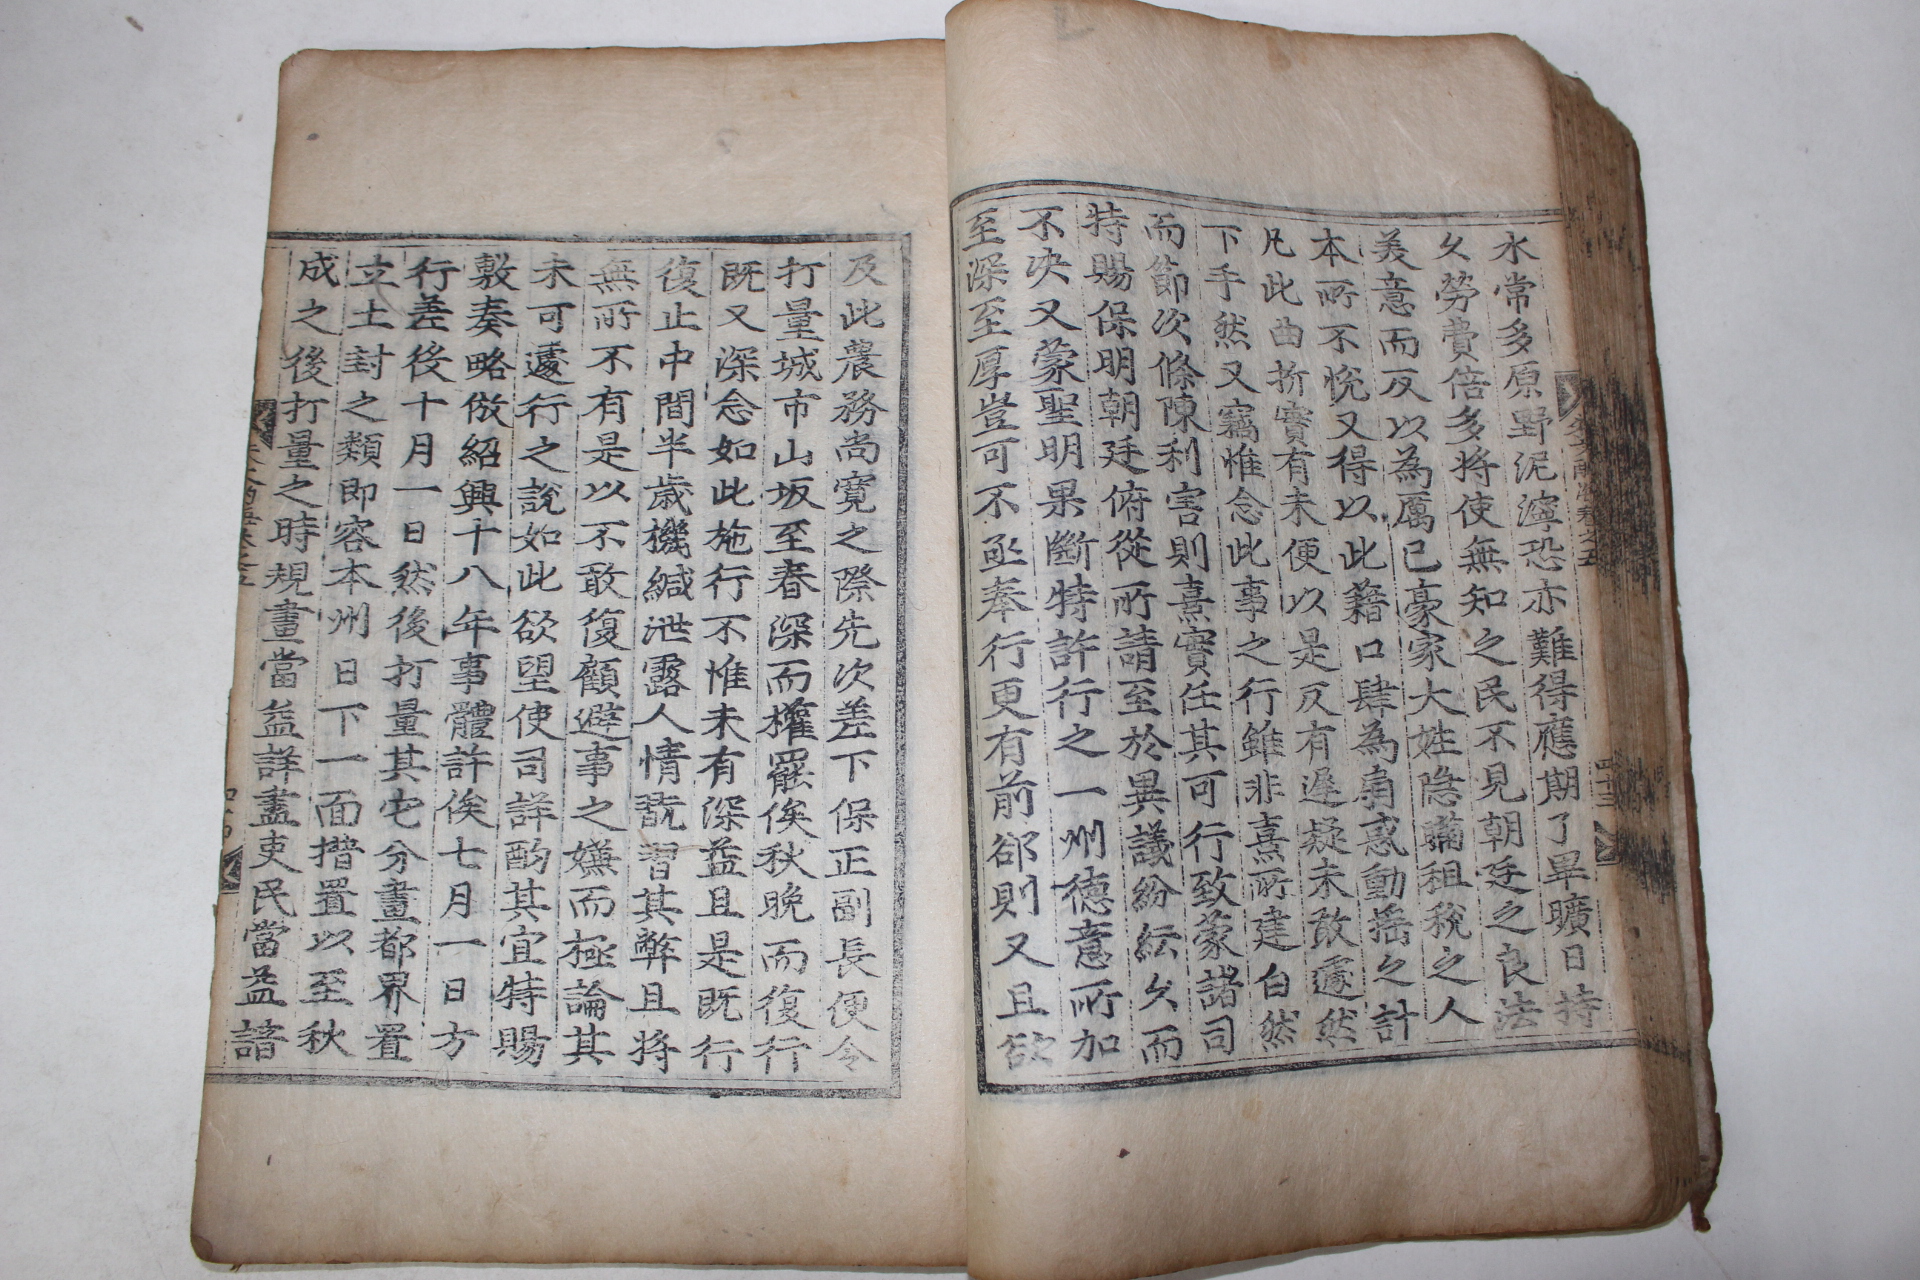 水常多原野泥濘恐亦難得應期了畢曠日持
久勞費倍多將使無知之民不見朝廷之良法
美意而反以為厲已豪家大姓隐瞞租稅之人
本所不悅又得以此藉口肆為扇惑動搖之計
凡此曲折實有未便以是反有遲疑未敢遽然
下手然又竊惟念此事之行雖非熹所建白然
而節次條陳利害則熹實任其可行致蒙諸司
特賜保明朝廷俯從所請至於異議紛紜久而
不决又蒙聖明果斷特許行之一州德意所加
至深至厚豈可不亟奉行更有前郤則又且欲
及此農務尚寬之際先次差下保正副長便令
打量城市山坂至春深而權罷俟秋晚而復行
既又深念如此施行不惟未有深益且是既行
復止中間半歲機緘泄露人情翫習其弊且將
無所不有是以不敢復顧避事之嫌而極論其
未可遽行之說如此欲望使司詳酌其宜特賜
敷奏略倣紹興十八年事體許俟七月一日方
行差後十月一日然後打量其屯分畫都界置
立土封之類即容本州日下一面措置以至秋
成之後打量之時規畫當益詳盡吏民當益諳